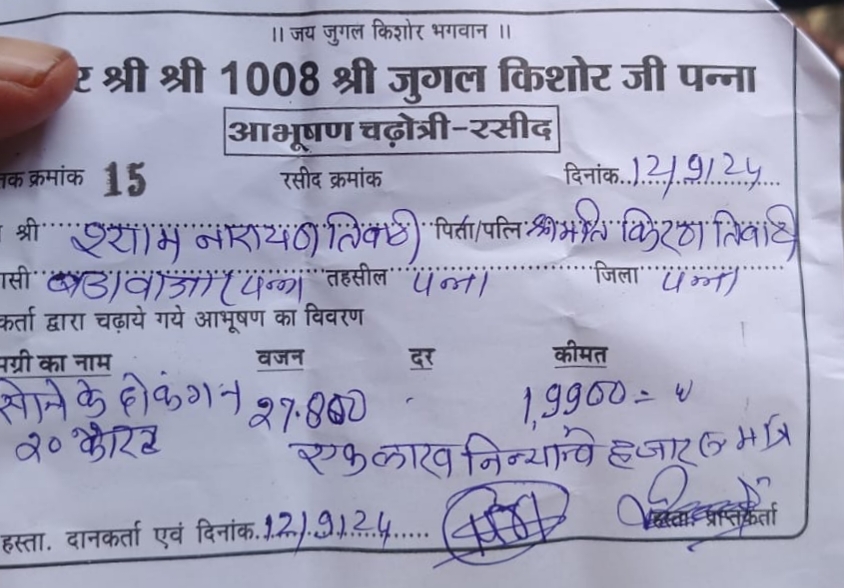 ।। जय जुगल किशोर भगवान ।।
र श्री श्री 1008 श्री जुगल किशोर जी पन्ना
आभूषण चढ़ोत्री-रसीद
तक क्रमांक 15 रसीद क्रमांक दिनांक..12/9/24
श्री श्याम नारायण तिवारी पिता/पत्नि श्रीमति किरण तिवारी
सी बड़ा बाजार पन्ना तहसील पन्ना जिला पन्ना
कर्ता द्वारा चढ़ाये गये आभूषण का विवरण
मग्री का नाम वजन दर कीमत
सोने के दो कंगन 27.800 1,9900=
२० कैरेट एक लाख निन्यान्वे हजार रु मात्र
हस्ता. दानकर्ता एवं दिनांक.12/9/24 हस्ता. प्राप्तकर्ता